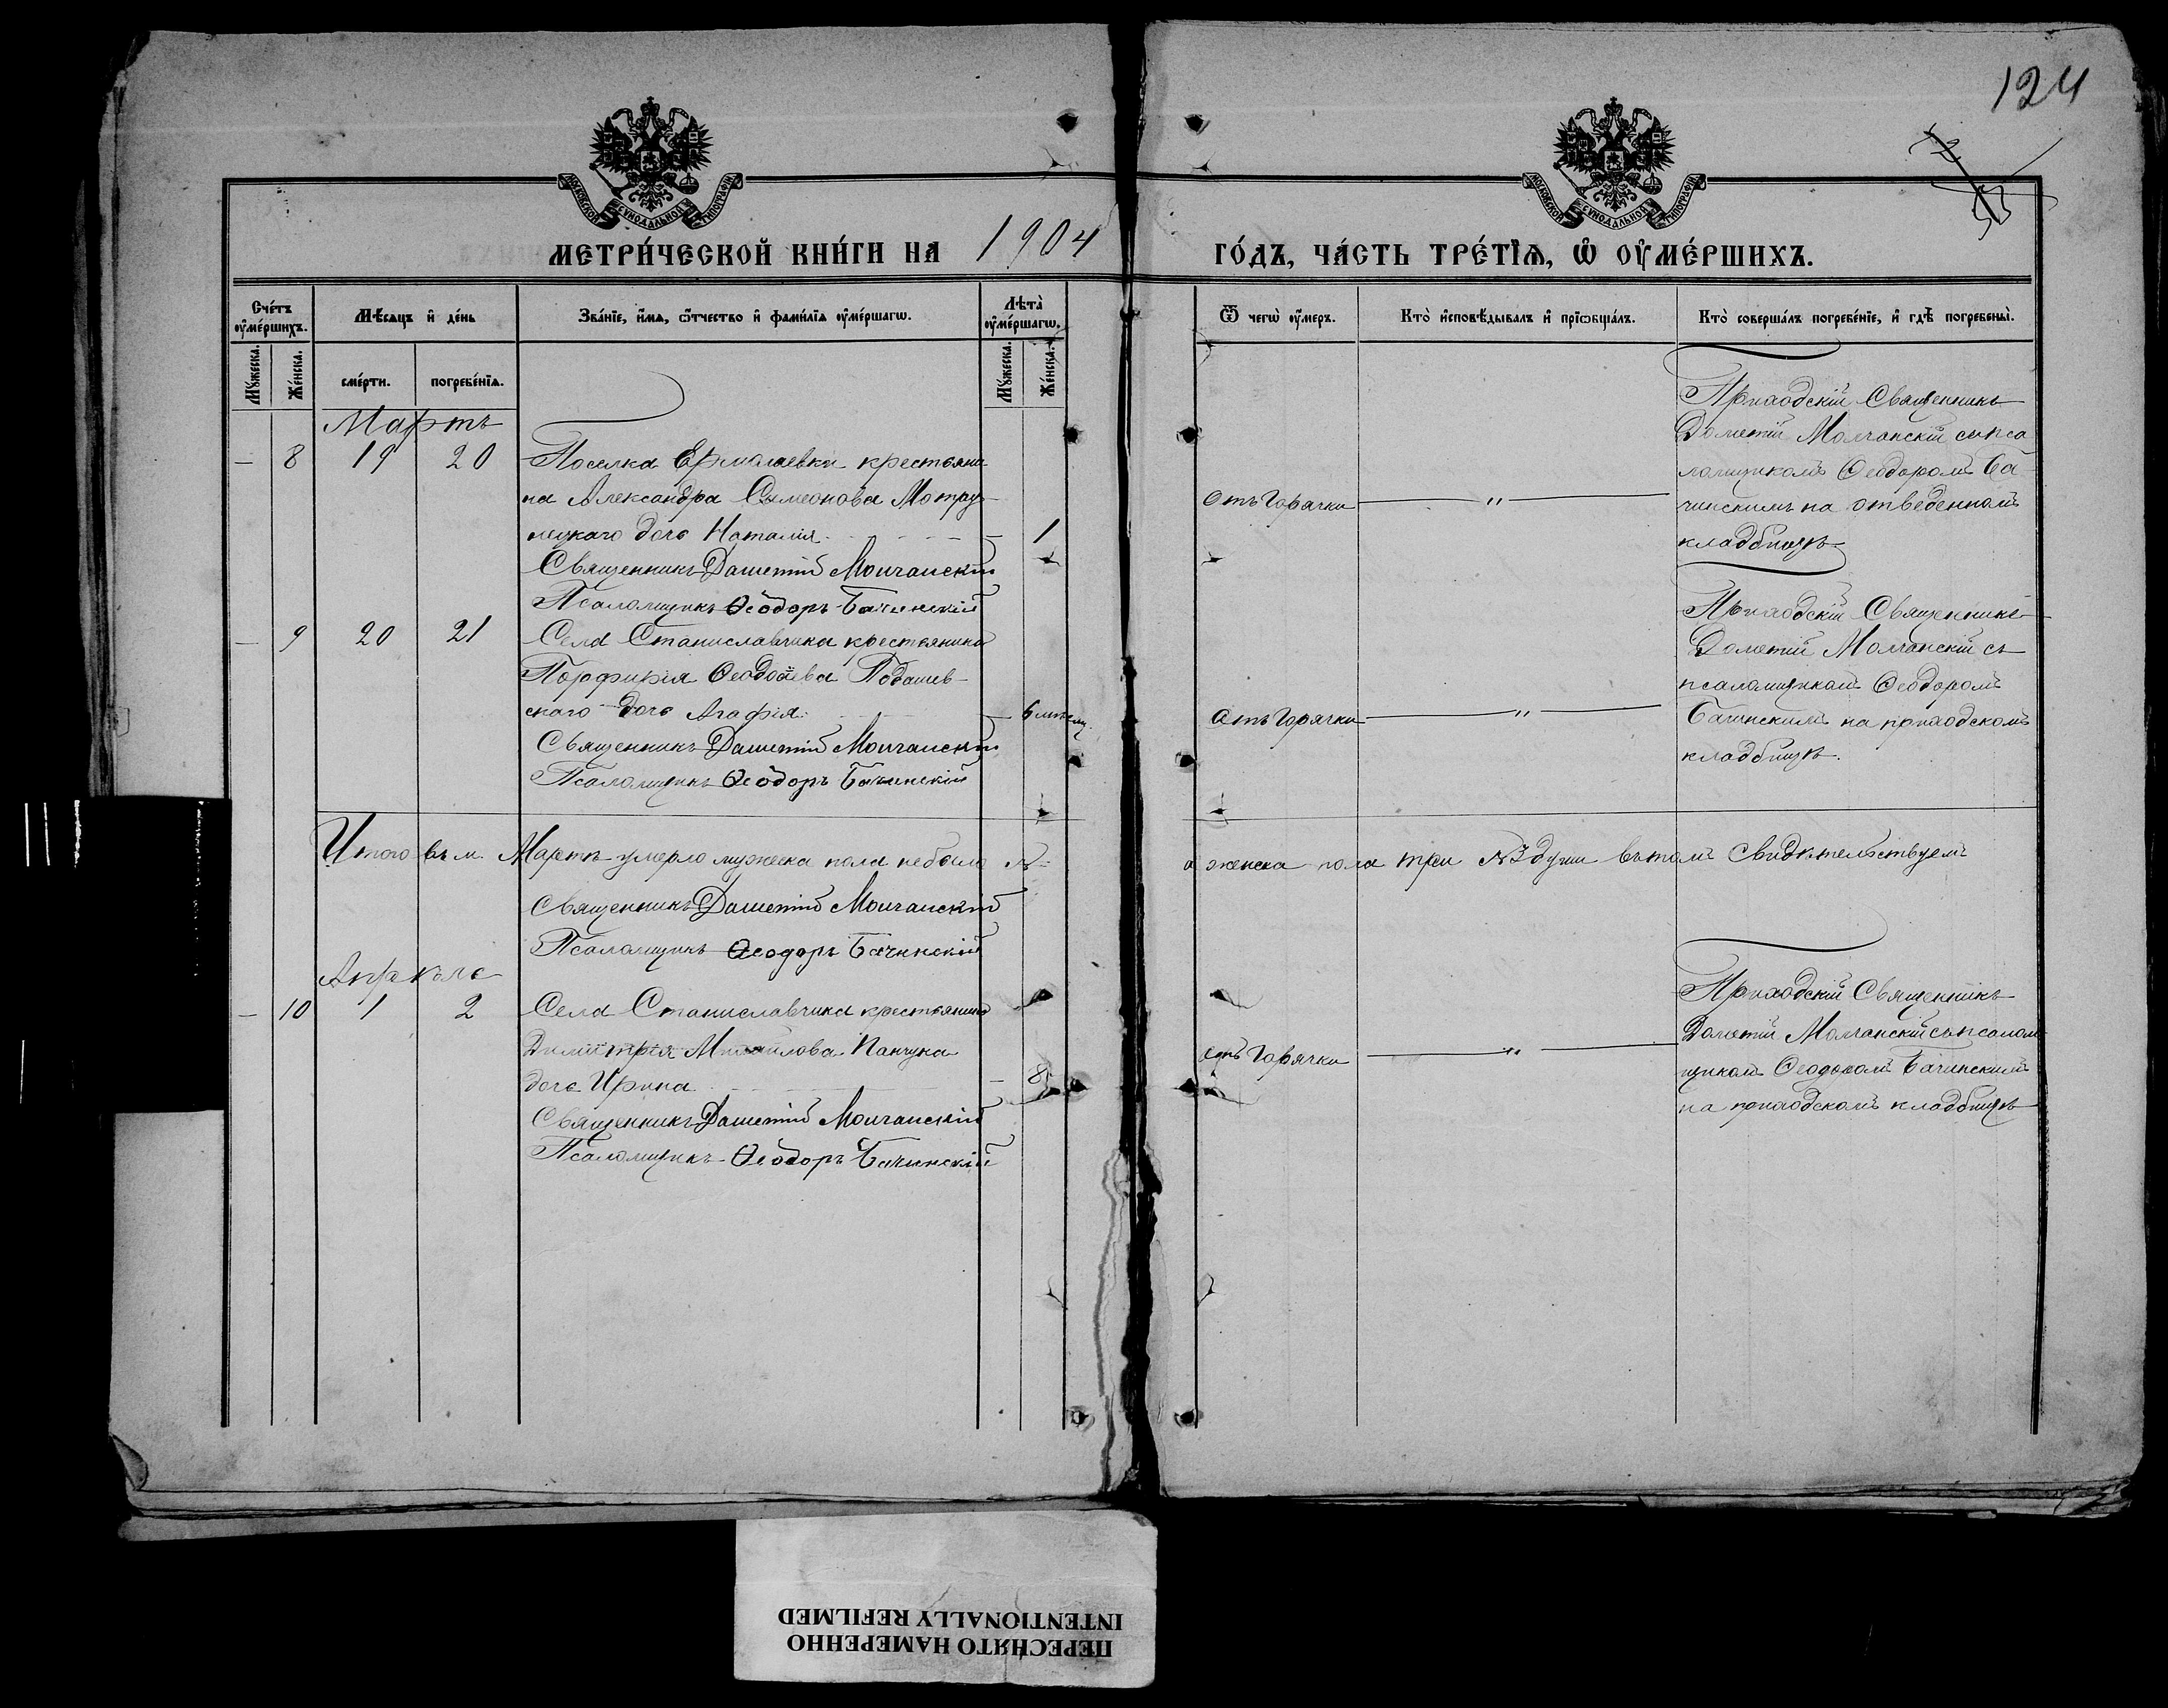 124
МОСКОВСКОЙ СѴНОДАЛЬНОЙ ТИПОГРАФІИ
МОСКОВСКОЙ СѴНОДАЛЬНОЙ ТИПОГРАФІИ
МЕТРИ́ЧЕСКОЙ КНИ́ГИ НА 1904 ГО́ДЪ, ЧА́СТЬ ТРЕ́ТІѦ, Ѡ҆ ОУ҆МЕ́РШИХЪ.
Сче́тъ оу҆ме́ршихъ.
Мѣ́сяцъ и҆ де́нь
Зва́нїе, и҆́мѧ, ѻ҆́тчество и҆ фами́лїѧ оу҆ме́ршагѡ.
Лѣта̀ оу҆ме́ршагѡ.
Ѿ чегѡ̀ оу҆́меръ.
Кто̀ и҆сповѣ́дывалъ и҆ прїѻбща́лъ.
Кто̀ соверша́лъ погребе́нїе, и҆ гдѣ̀ погребены̀.
Му́жеска.
Же́нска.
сме́рти.
погребе́нїѧ.
Му́жеска.
Же́нска.
Мартъ
— 8 19 20 Поселка Ермолаевки крестьяни
на Александра Симеонова Мотру
нецкаго дочь Наталія — 1
Священникъ Дометій Молчанскій
Псаломщикъ Ѳеодоръ Бачинскій
отъ горячки — " —
Приходскій Священникъ
Дометій Молчанскій съ пса
ломщикомъ Ѳеодоромъ Ба
чинскимъ на отведенномъ
кладбищѣ
— 9 20 21 Села Станиславчика крестьянина
Порфирія Ѳеодотіева Подашев-
скаго дочь Агафія — 6 мѣсяц.
Священникъ Дометій Молчанскій
Псаломщикъ Ѳеодоръ Бачинскій
отъ горячки — " —
Приходскій Священникъ
Дометій Молчанскій съ
псаломщикомъ Ѳеодоромъ
Бачинскимъ на приходскомъ
кладбищѣ.
Итого въ м. Мартѣ умерло мужеска пола небыло а женска пола три №3 души въ томъ свидѣтельствуемъ
Священникъ Дометій Молчанскій
Псаломщикъ Ѳеодоръ Бачинскій
Апрѣль
— 10 1 2 Села Станиславчика крестьянина
Димитрія Михайлова Панчука
дочь Ирина — 8
Священникъ Дометій Молчанскій
Псаломщикъ Ѳеодоръ Бачинскій
отъ горячки — " —
Приходскій Священникъ
Дометій Молчанскій съ псалом
щикомъ Ѳеодоромъ Бачинскимъ
на приходскомъ кладбищѣ
ПЕРЕСНЯТО НАМЕРЕННО
INTENTIONALLY REFILMED